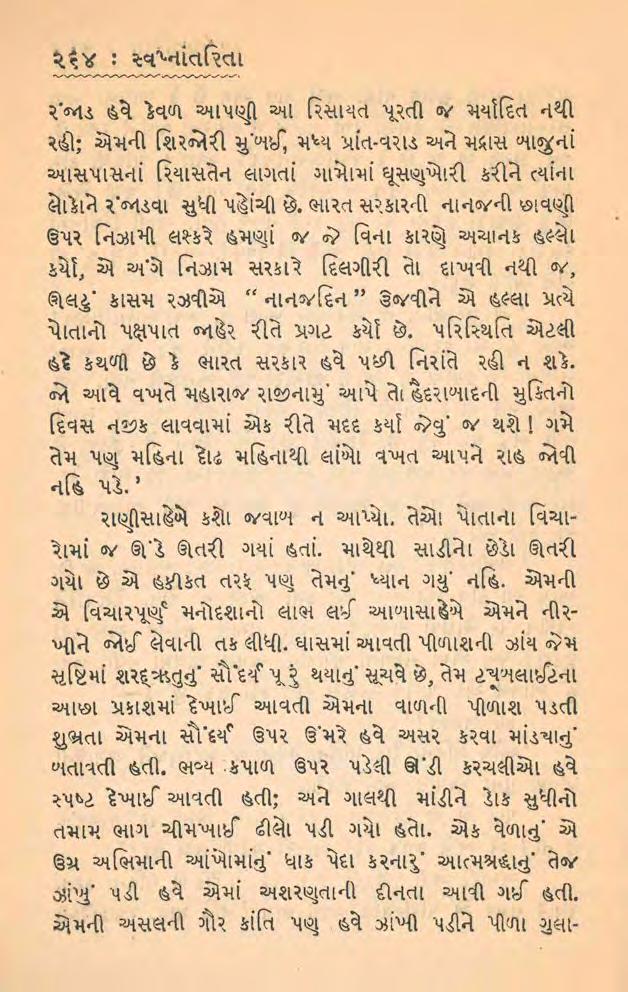 ૨૬૪ : સ્વપ્નાંતરિતા
રંજાડ હવે કેવળ આપણી આ રિસાયત પૂરતી જ મર્યાદિત નથી
રહી; એમની શિરજોરી મુંબઈ, મધ્ય પ્રાંત-વરાડ અને મદ્રાસ બાજુનાં
આસપાસનાં રિયાસતેન લાગતાં ગામોમાં ઘૂસણખોરી કરીને ત્યાંના
લોકોને રંજાડવા સુધી પહોંચી છે. ભારત સરકારની નાનજની છાવણી
ઉપર નિઝામી લશ્કરે હમણાં જ જે વિના કારણે અચાનક હલ્લો
કર્યો, એ અંગે નિઝામ સરકારે દિલગીરી તો દાખવી નથી જ,
ઊલટું કાસમ રઝવીએ “ નાનજદિન ” ઉજવીને એ હલ્લા પ્રત્યે
પોતાનો પક્ષપાત જાહેર રીતે પ્રગટ કર્યો છે. પરિસ્થિતિ એટલી
હદે કથળી છે કે ભારત સરકાર હવે પછી નિરાંતે રહી ન શકે.
જો આવે વખતે મહારાજ રાજીનામું આપે તો હૈદરાબાદની મુક્તિનો
દિવસ નજીક લાવવામાં એક રીતે મદદ કર્યા જેવું જ થશે ! ગમે
તેમ પણ મહિના દોઢ મહિનાથી લાંબો વખત આપને રાહ જોવી
નહિ પડે. ’
રાણીસાહેબે કશો જવાબ ન આપ્યો. તેઓ પોતાના વિચા-
રોમાં જ ઊંડે ઊતરી ગયાં હતાં. માથેથી સાડીનો છેડો ઊતરી
ગયો છે એ હકીકત તરફ પણ તેમનું ધ્યાન ગયું નહિ. એમની
એ વિચારપૂર્ણ મનોદશાનો લાભ લઈ આબાસાહેબે એમને નીર-
ખીને જોઈ લેવાની તક લીધી. ઘાસમાં આવતી પીળાશની ઝાંય જેમ
સૃષ્ટિમાં શરદ્ઋતુનું સૌંદર્ય પૂરું થયાનું સૂચવે છે, તેમ ટ્યૂબલાઈટના
આછા પ્રકાશમાં દેખાઈ આવતી એમના વાળની પીળાશ પડતી
શુભ્રતા એમના સૌંદર્ય ઉપર ઉંમરે હવે અસર કરવા માંડ્યાનું
બતાવતી હતી. ભવ્ય કપાળ ઉપર પડેલી ઊંડી કરચલીઓ હવે
સ્પષ્ટ દેખાઈ આવતી હતી; અને ગાલથી માંડીને ડોક સુધીનો
તમામ ભાગ ચીમખાઈ ઢીલો પડી ગયો હતો. એક વેળાનું એ
ઉગ્ર અભિમાની આંખોમાંનું ધાક પેદા કરનારું આત્મશ્રદ્ધાનું તેજ
ઝાંખું પડી હવે એમાં અશરણતાની દીનતા આવી ગઈ હતી.
એમની અસલની ગૌર કાંતિ પણ હવે ઝાંખી પડીને પીળા ગુલા-